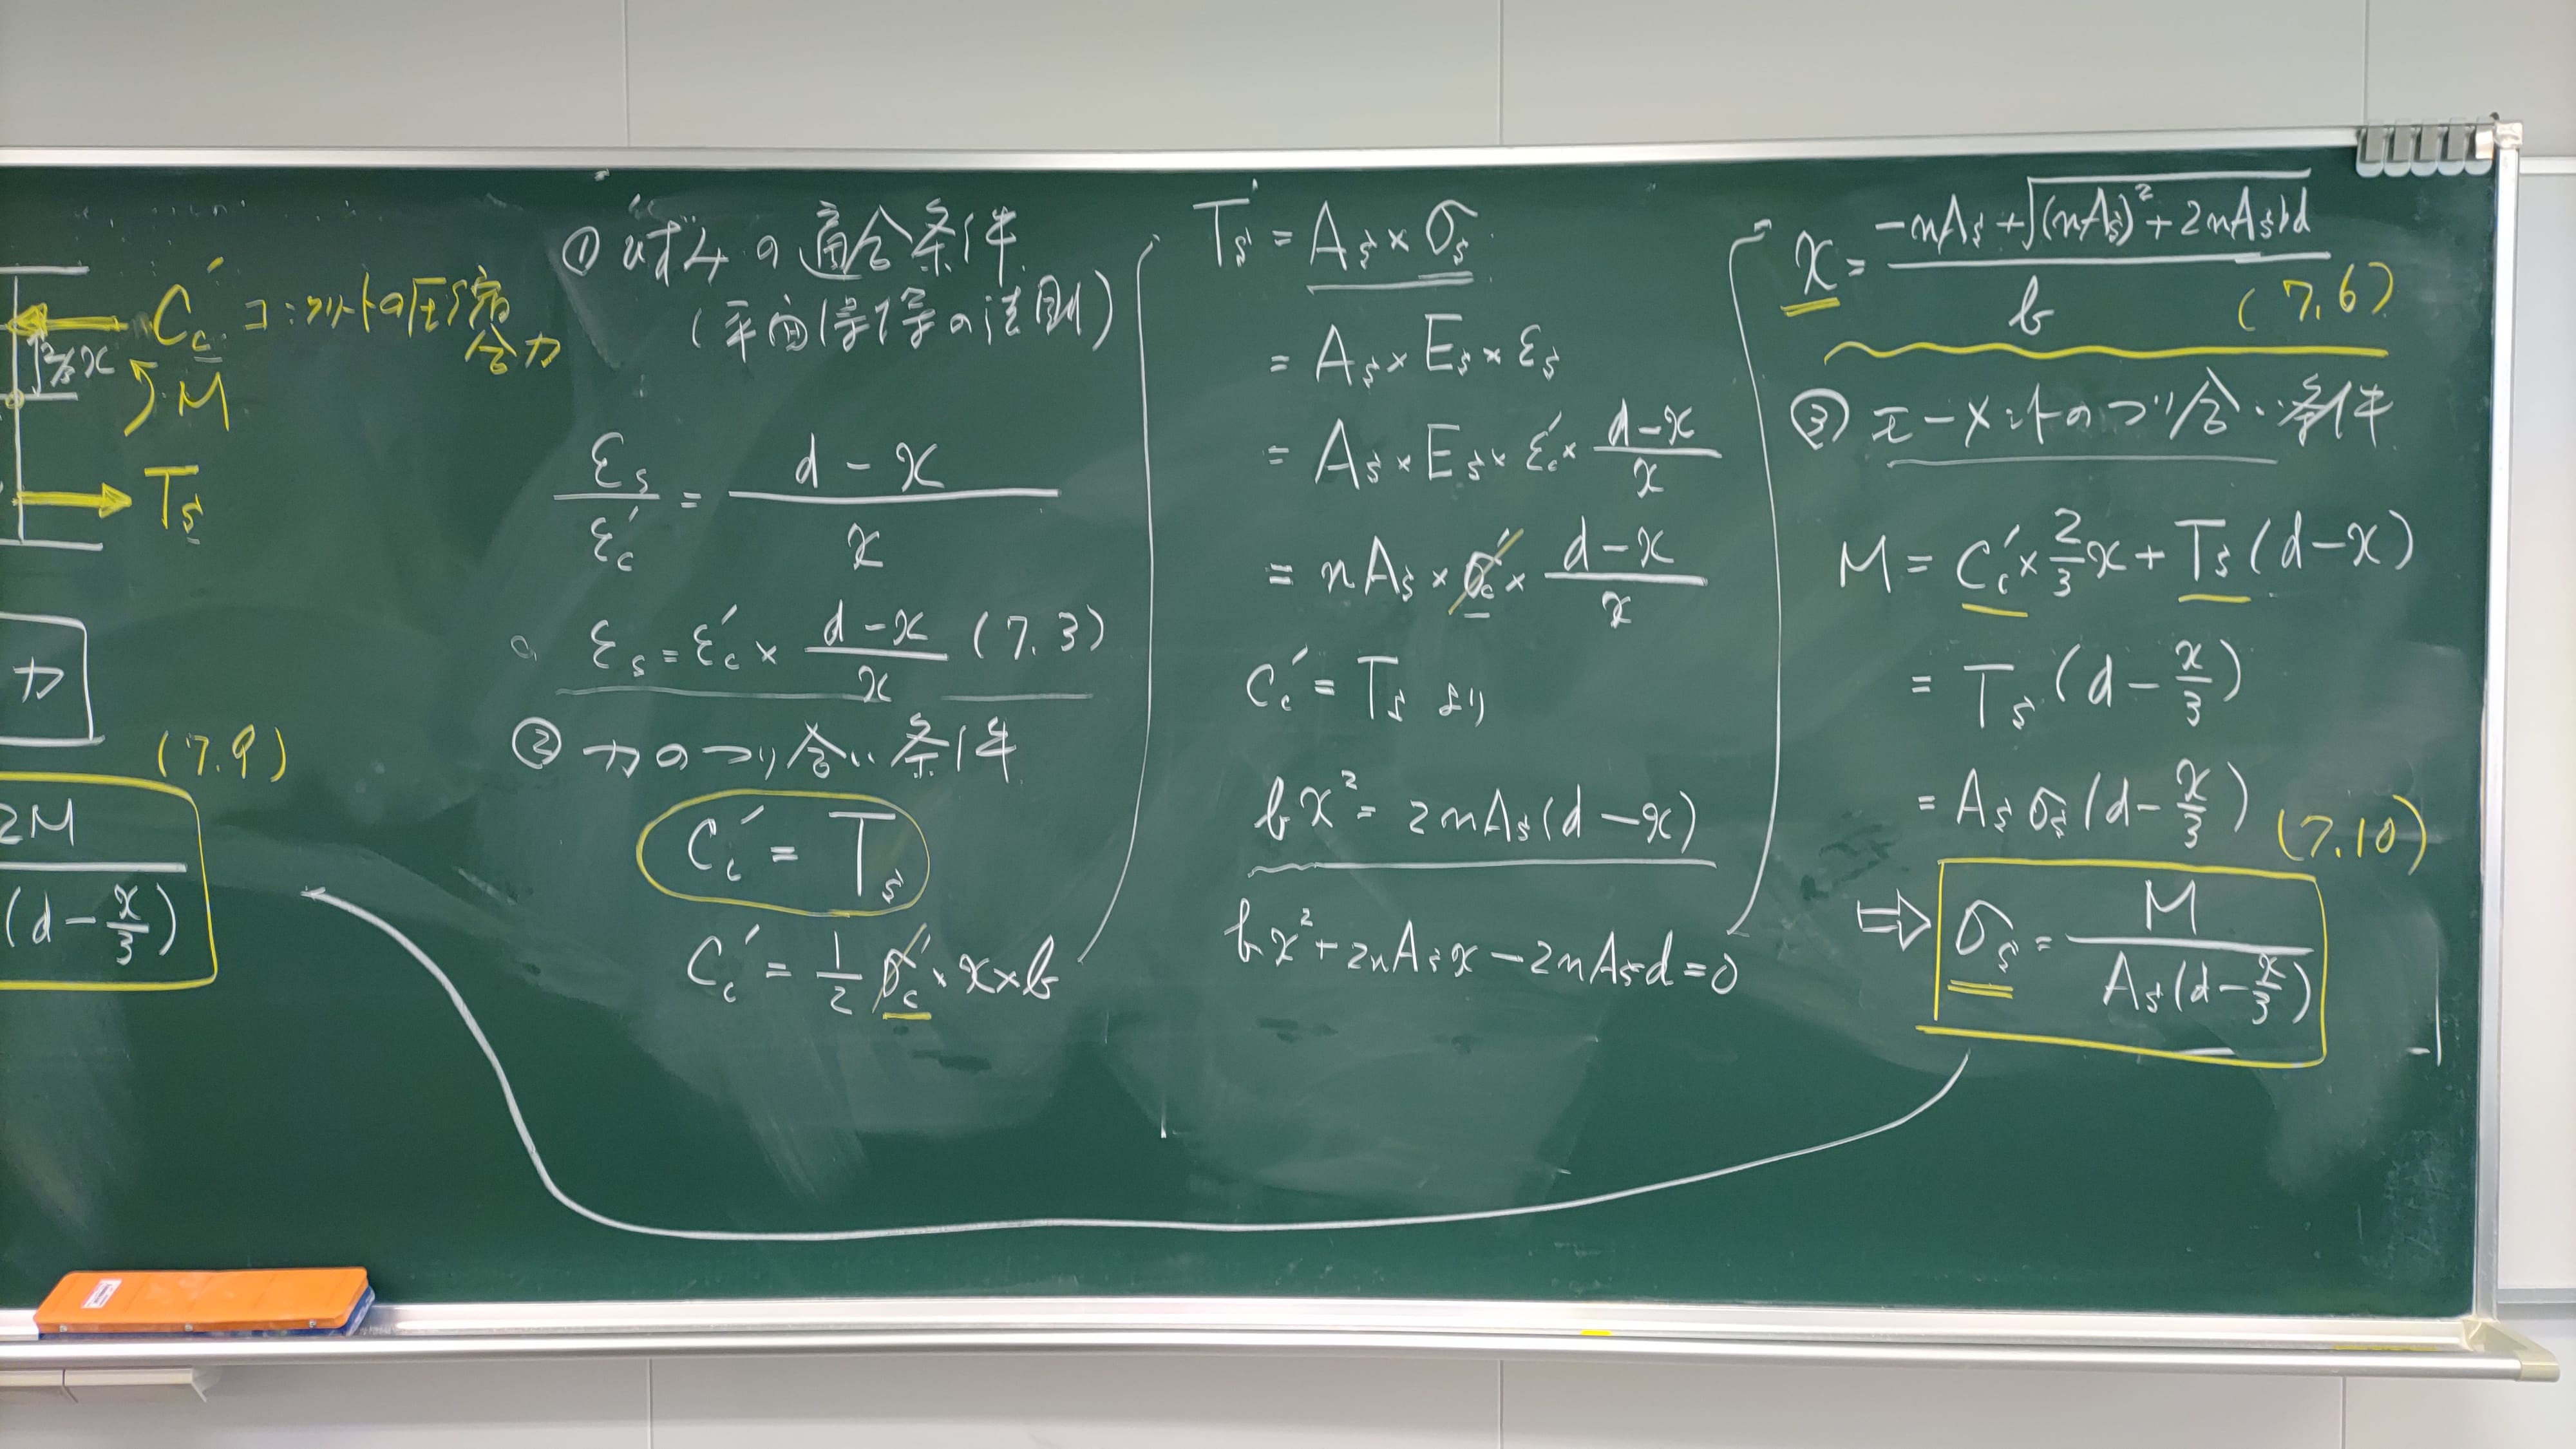 C'c コンクリートの圧縮
合力
2/3 x
M
Ts
力
(7.9)
2M
(d - x/3)
① ひずみの適合条件
(平面保持の法則)
εs/ε'c = (d - x)/x
εs = ε'c × (d - x)/x (7.3)
② 力のつり合い条件
C'c = Ts
C'c = 1/2 σ'c × x × b
Ts = As × σs
= As × Es × εs
= As × Es × ε'c × (d - x)/x
= nAs × σ'c × (d - x)/x
C'c = Ts より
bx² = 2nAs(d - x)
bx² + 2nAsx - 2nAsd = 0
x = (-nAs + √((nAs)² + 2nAsbd))/b (7.6)
③ モーメントのつり合い条件
M = C'c × 2/3 x + Ts(d - x)
= Ts(d - x/3)
= Asσs(d - x/3)
(7.10)
⇨ σs = M/(As(d - x/3))